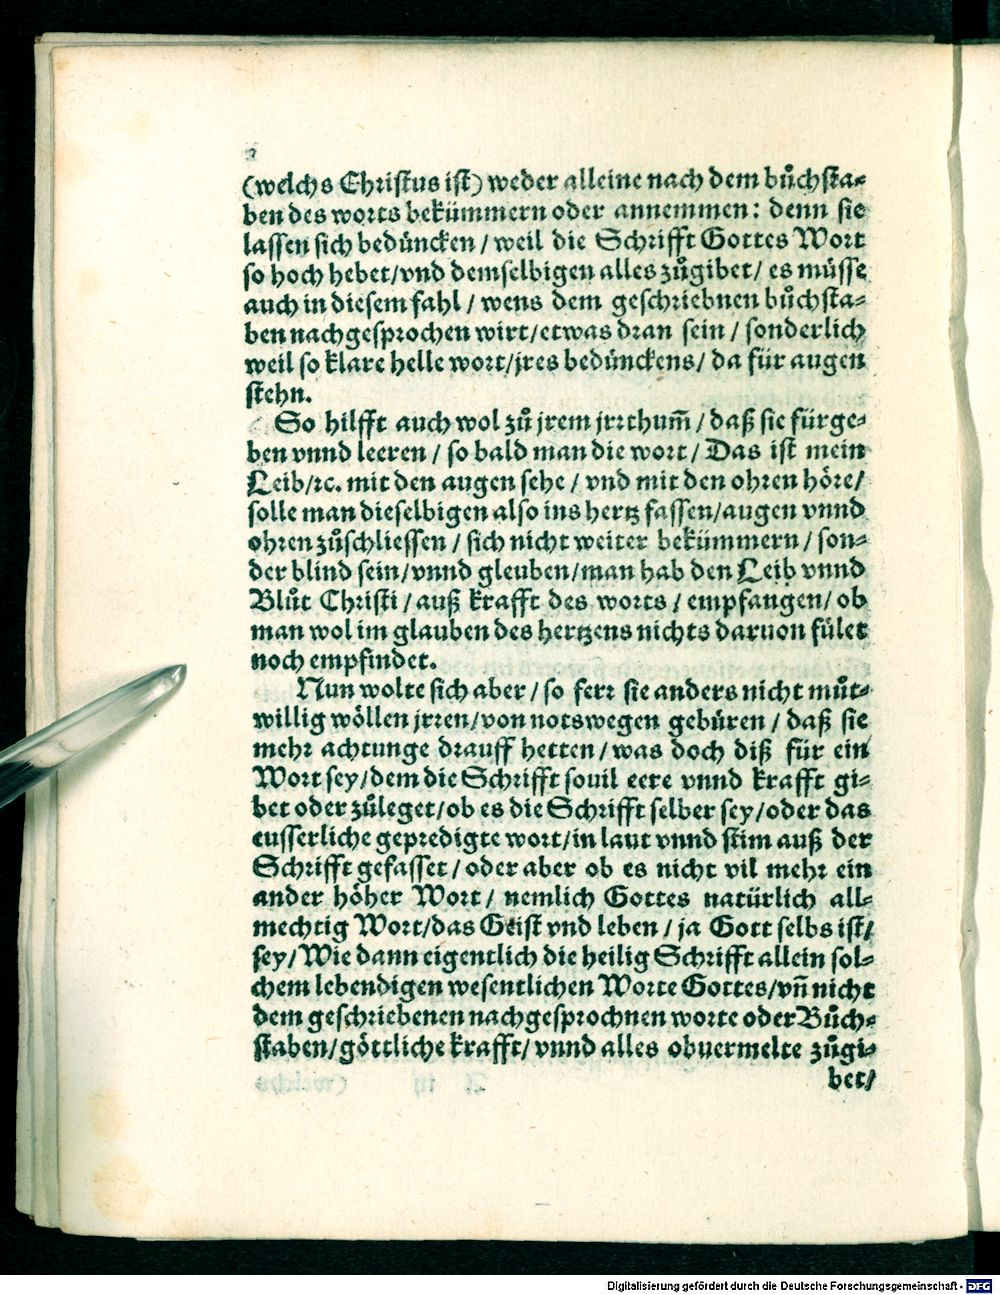 (welchs Christus ist) weder alleine nach dem bůchsta-
ben des worts bekümmern oder annemmen: denn sie
lassen sich bedüncken / weil die Schrifft Gottes Wort
so hoch hebet/vnd demselbigen alles zůgibet/ es müsse
auch in diesem fahl / wens dem geschriebnen bůchsta-
ben nachgesprochen wirt/etwas dran sein / sonderlich
weil so klare helle wort/jres bedünckens/ da für augen
stehn.
So hilfft auch wol zů jrem jrrthum̃ / daß sie fürge-
ben vnnd leeren / so bald man die wort / Das ist mein
Leib/ꝛc. mit den augen sehe / vnd mit den ohren höre/
solle man dieselbigen also ins hertz fassen/augen vnnd
ohren zůschliessen / sich nicht weiter bekümmern / son-
der blind sein/vnnd gleuben/man hab den Leib vnnd
Blůt Christi / auß krafft des worts / empfangen/ ob
man wol im glauben des hertzens nichts daruon fület
noch empfindet.
Nun wolte sich aber / so ferr sie anders nicht můt-
willig wöllen jrren/von notswegen gebüren / daß sie
mehr achtunge drauff hetten / was doch diß für ein
Wort sey/dem die Schrifft souil eere vnnd krafft gi-
bet oder zůleget/ob es die Schrifft selber sey/oder das
eusserliche gepredigte wort/in laut vnnd stim auß der
Schrifft gefasset / oder aber ob es nicht vil mehr ein
ander höher Wort / nemlich Gottes natürlich all-
mechtig Wort/das Geist vnd leben / ja Gott selbs ist/
sey/Wie dann eigentlich die heilig Schrifft allein sol-
chem lebendigen wesentlichen Worte Gottes/vñ nicht
dem geschriebenen nachgesprochnen worte oder Bůch-
staben/göttliche krafft/ vnnd alles obuermelte zůgi-
bet/
Digitalisierung gefördert durch die Deutsche Forschungsgemeinschaft - DFG